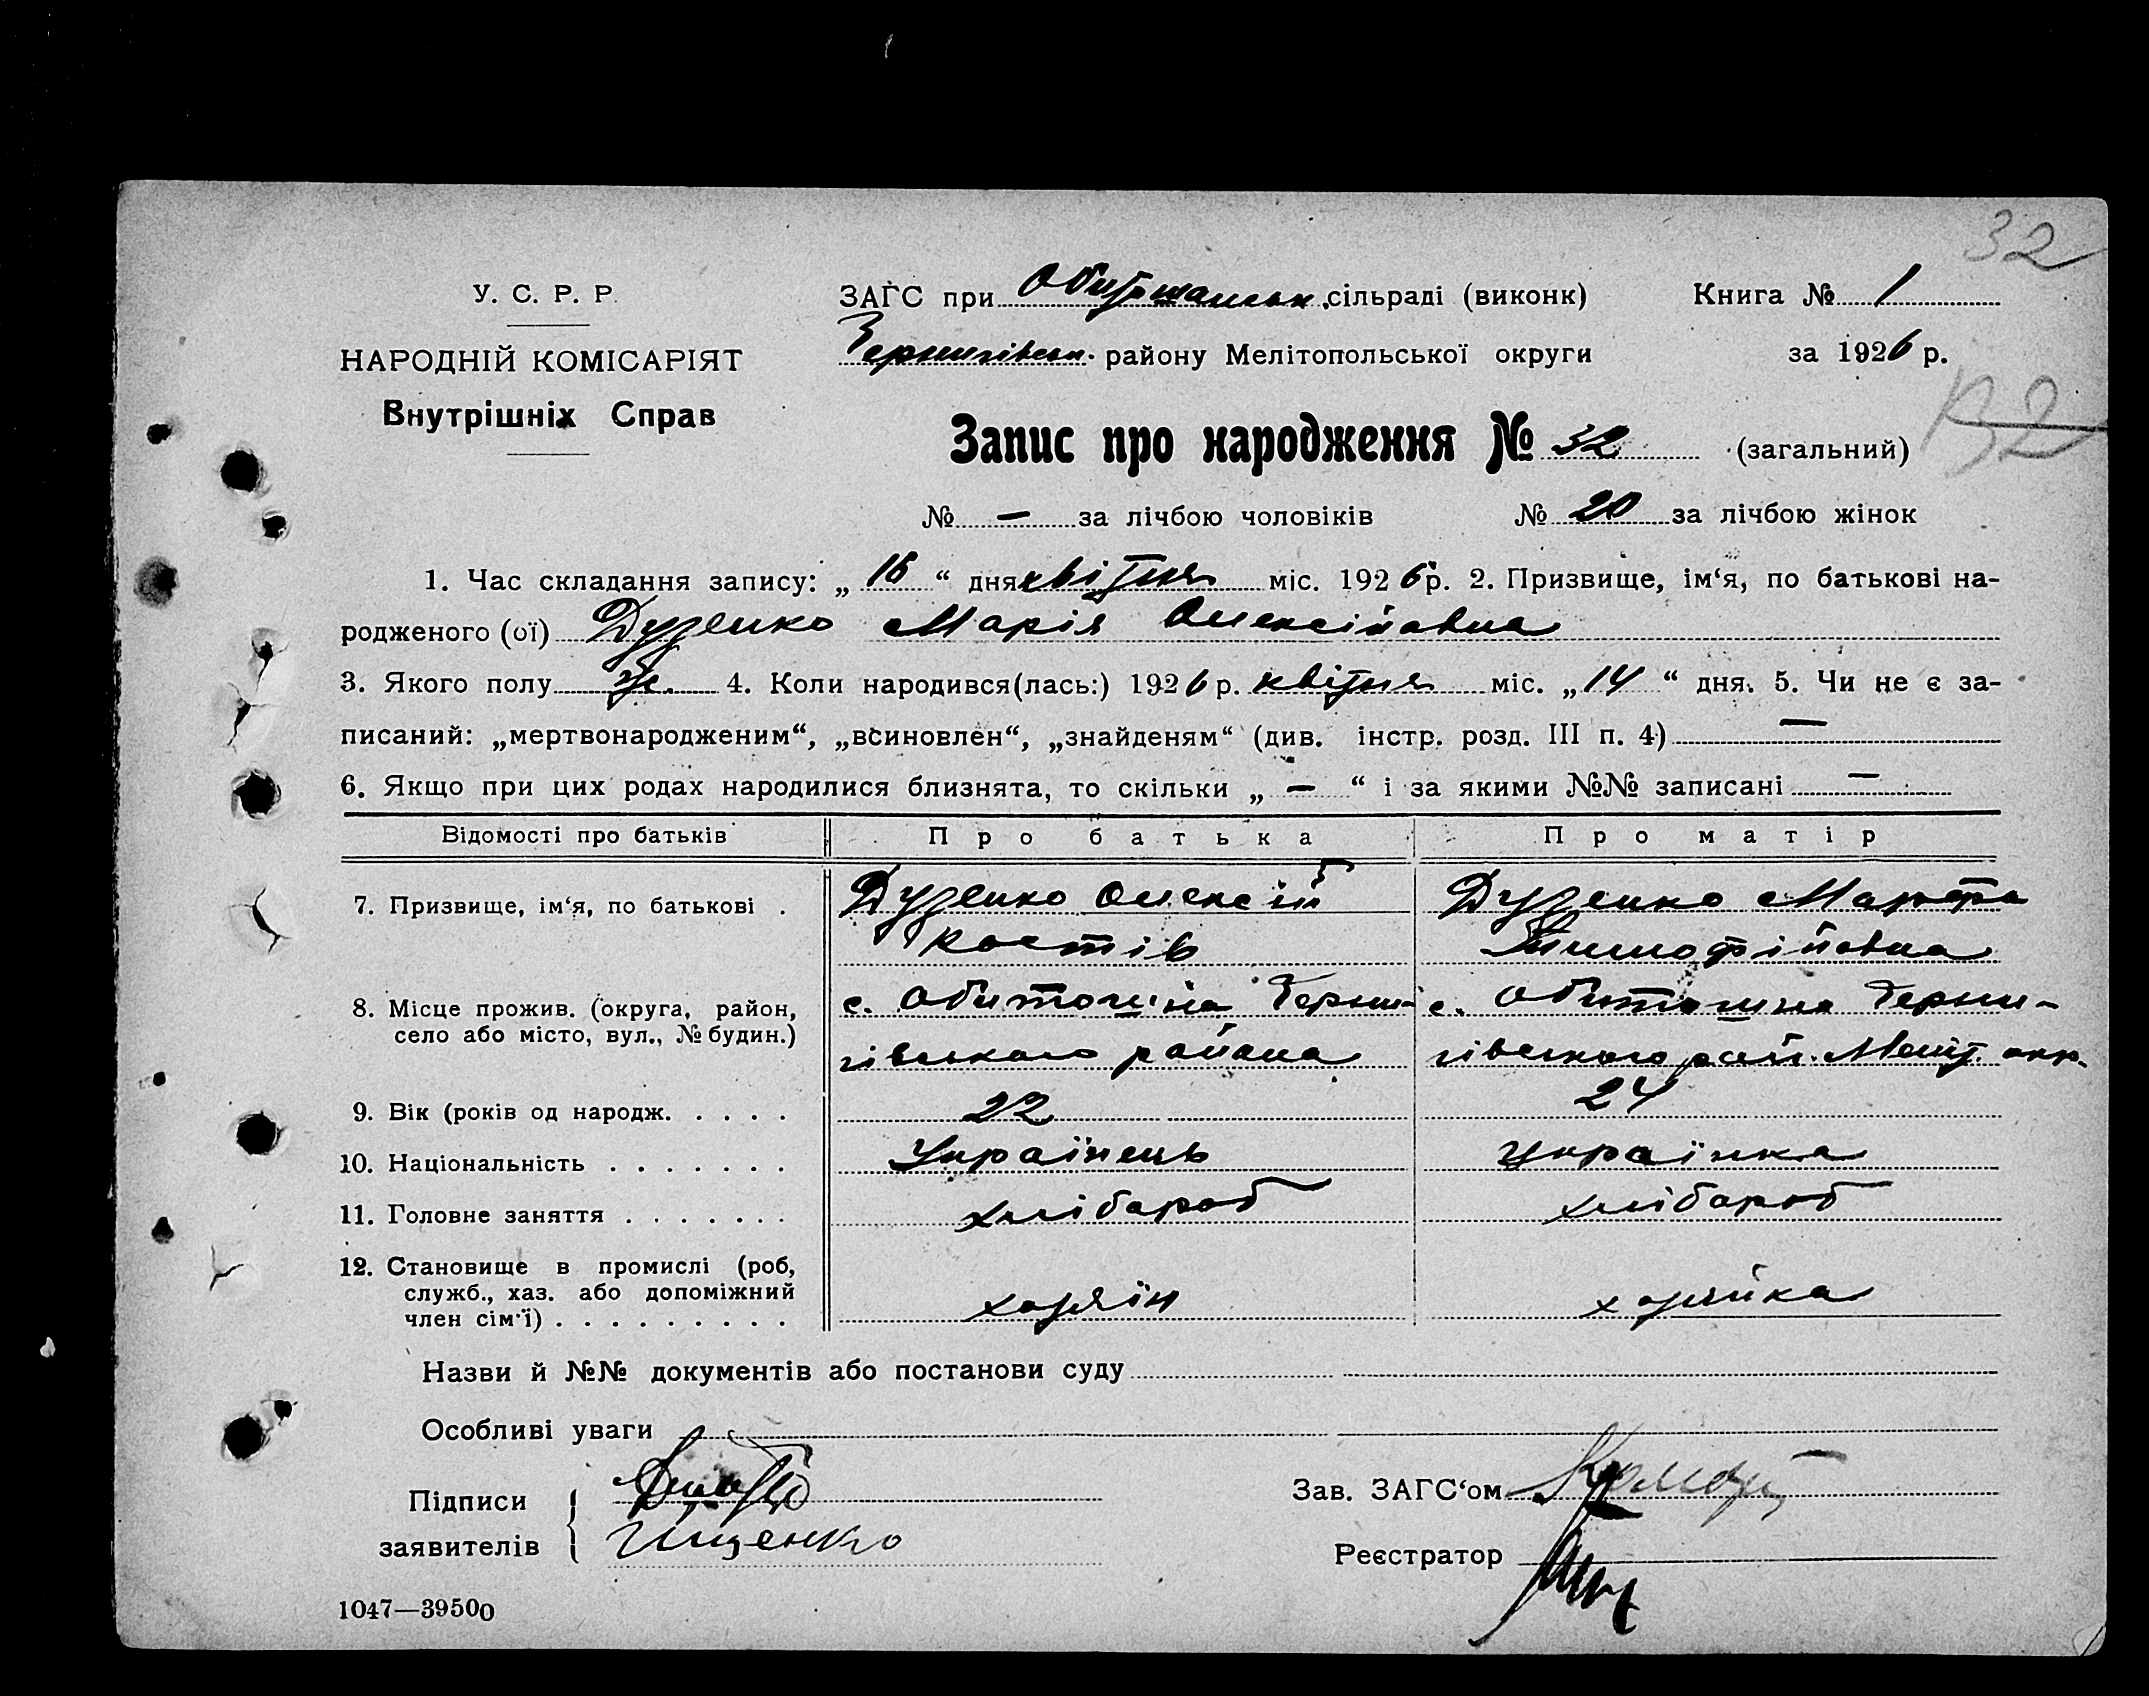 32
У. С. Р. Р.
ЗАГС при Обиточанськ. сільраді (виконк) Книга № 1
НАРОДНІЙ КОМІСАРІЯТ
Чернигівськ. району Мелітопольської округи за 1926 р.
Внутрішніх Справ
Запис про народження № 32 (загальний)
№ — за лічбою чоловіків № 20 за лічбою жінок
1. Час складання запису: „16“ дня квітня міс. 1926 р. 2. Призвище, ім‘я, по батькові на-
родженого (ої) Дузенко Марія Олексійовна
3. Якого полу ж. 4. Коли народився(лась:) 1926 р. квітня міс. „14“ дня. 5. Чи не є за-
писаний: „мертвонародженим“, „всиновлен“, „знайденям“ (див. інстр. розд. III п. 4) —
6. Якщо при цих родах народилися близнята, то скільки „—“ і за якими №№ записані —
Відомості про батьків Про батька Про матір
7. Призвище, ім‘я, по батькові . Дузенко Олексій Дузенко Марфа
Костів Тимофійовна
8. Місце прожив. (округа, район, с. Обиточна Черни- с. Обиточна Черни-
село або місто, вул., № будин.) гівського района гівського рай. Меліт. окр.
9. Вік (років од народж. . . . . 22 24
10. Національність . . . . . . . Українець Українка
11. Головне заняття . . . . . . . хлібороб хлібороб
12. Становище в промислі (роб, служб., хаз. або допоміжний член сім‘ї) . . . . . . . . . хазяїн хазяйка
Назви й №№ документів або постанови суду
Особливі уваги
Підписи
Зав. ЗАГС‘ом
заявителів Іщенко
Реєстратор
1047—39500